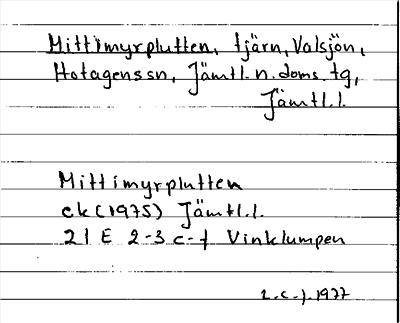 Mittimyrplutten, tjärn, Valsjön,
Hotagens sn, Jämtl. n. doms. tg,
Jämtl. l.
Mittimyrplutten
ek (1975) Jämtl. l.
21 E 2-3 c-f Vinklumpen
2.c-f.1977